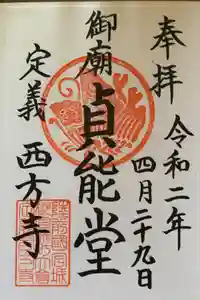 奉拝
令和二年
四月二十九日
御廟
貞能堂
定義
西方寺